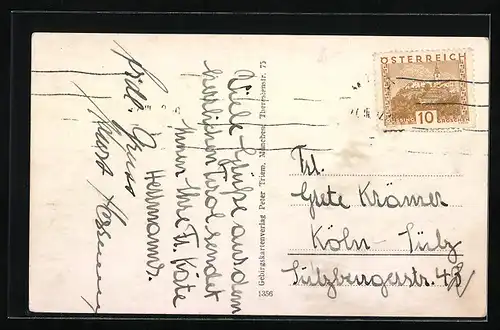 Viele Grüße aus dem
herrlichen Tirol sendet
Ihnen Ihre Tl. Käte
Herrmanns.
Gruss
Gebirgskartenverlag Peter Triem, München, Theresienstr. 75
1356
ÖSTERREICH
10
GROSCHEN
Frl.
Grete Krämer
Köln-Sülz
Sülzburgerstr. 48